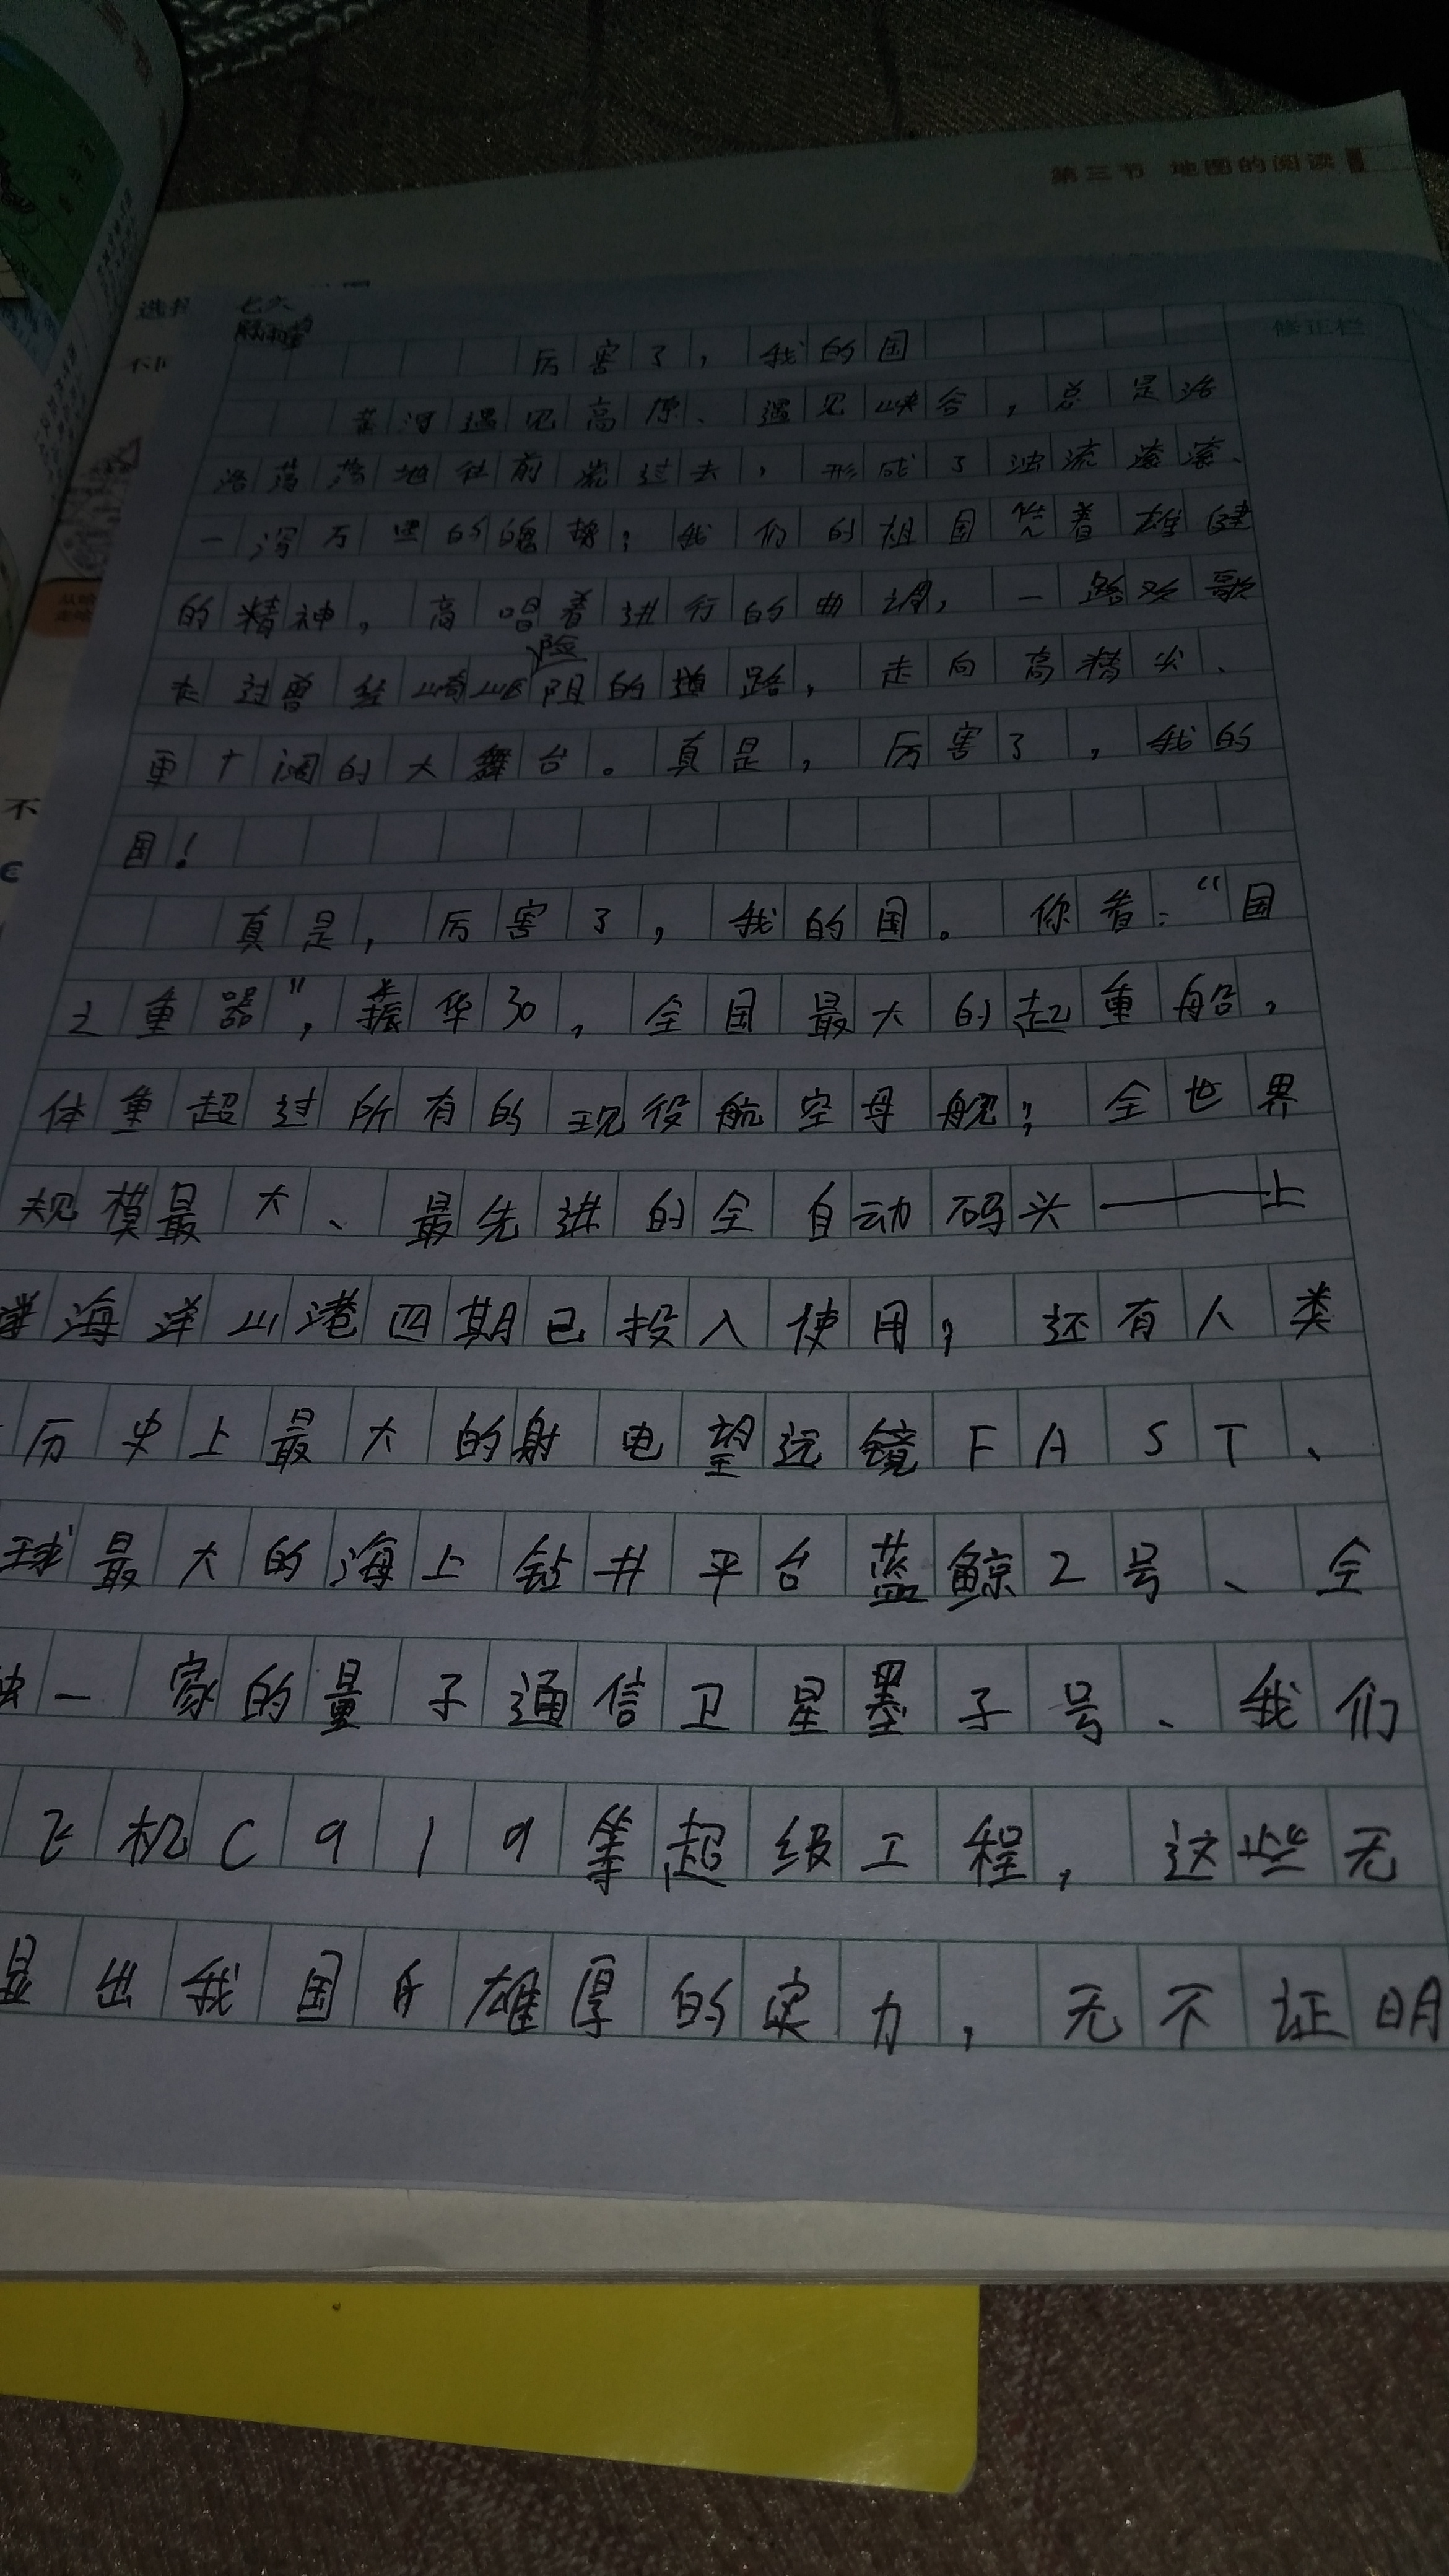 第三节 地图的阅读
修正栏
厉害了，我的国
黄河遇见高原、遇见峡谷，总是浩
浩荡荡地往前流过去，形成了浊流滚滚、
一泻万里的魄势；我们的祖国凭着雄健
的精神，高唱着进行的曲调，一路欢歌
走过曾经崎岖险阻的道路，走向高精尖、
更广阔的大舞台。真是，厉害了，我的
国！
真是，厉害了，我的国。你看：“国
之重器”，振华30，全国最大的起重船，
体重超过所有的现役航空母舰；全世界
规模最大、最先进的全自动码头——上
海洋山港四期已投入使用；还有人类
历史上最大的射电望远镜FAST、
球最大的海上钻井平台蓝鲸2号、全
一家的量子通信卫星墨子号、我们
飞机C919等超级工程，这些无
显出我国雄厚的实力，无不证明
不